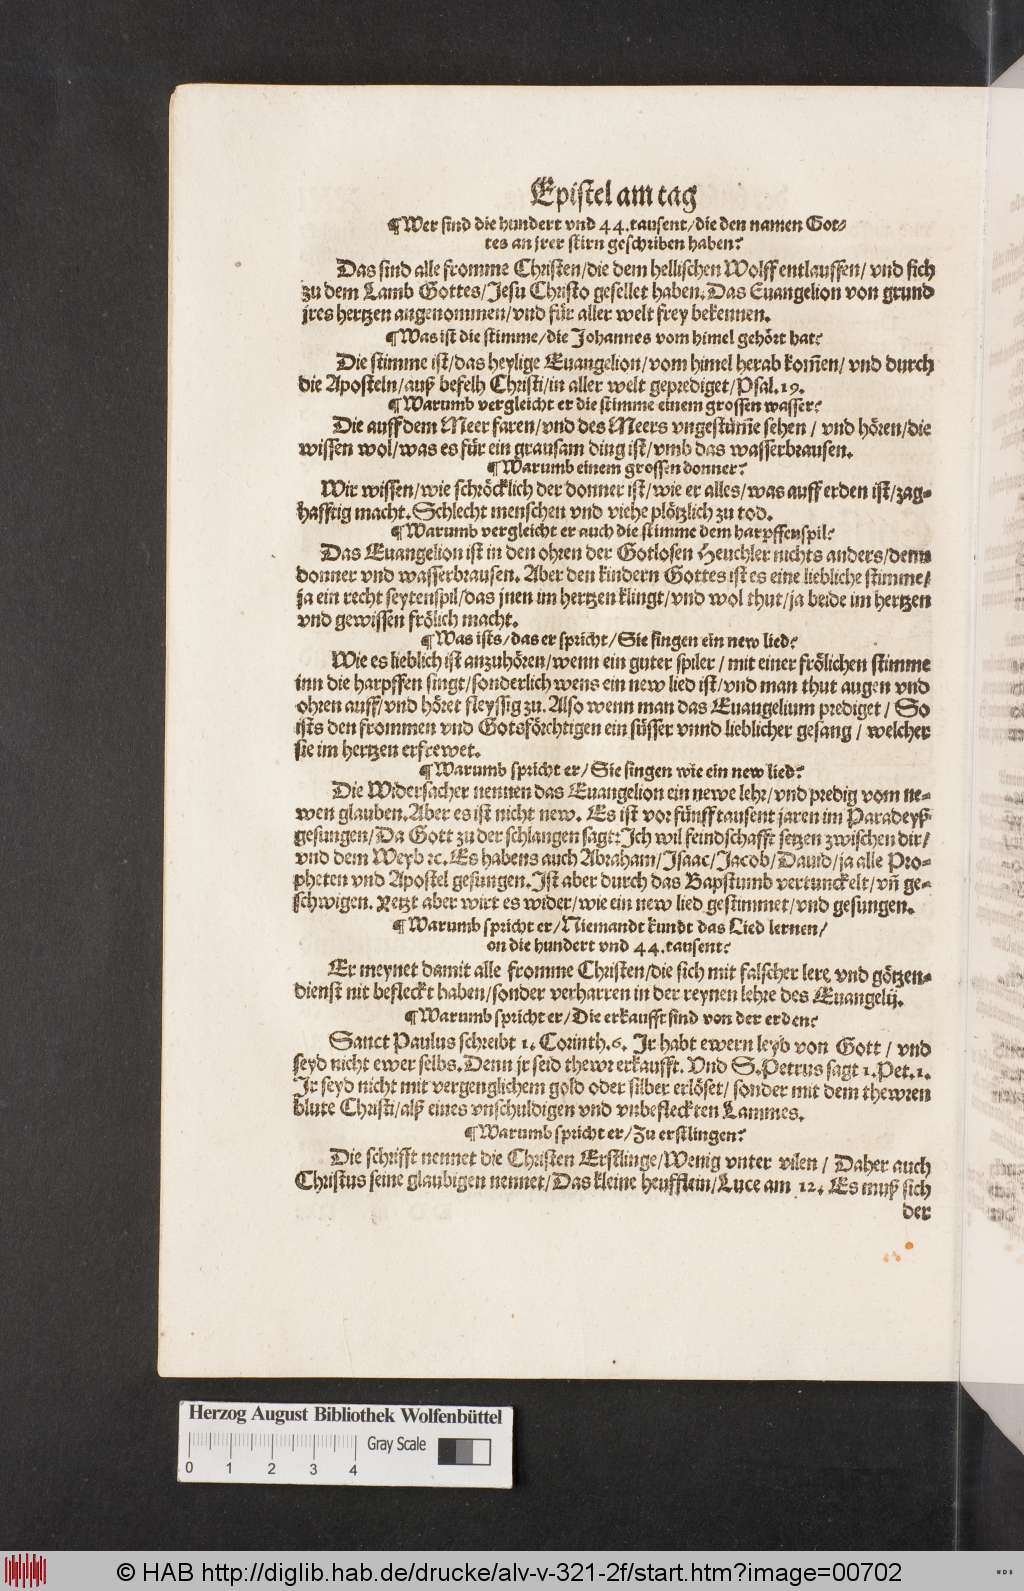 Epistel am tag
¶Wer sind die hundert vnd 44.tausent/die den namen Got-
tes an jrer stirn geschriben haben?
Das sind alle fromme Christen/die dem hellischen Wolff entlauffen/ vnd sich
zu dem Lamb Gottes/Jesu Christo gesellet haben. Das Euangelion von grund
jres hertzen angenommen/vnd für aller welt frey bekennen.
¶Was ist die stimme/die Johannes vom himel gehört hat?
Die stimme ist/das heylige Euangelion/vom himel herab kom̃en/ vnd durch
die Aposteln/auß befelh Christi/in aller welt geprediget/Psal.19.
¶Warumb vergleicht er die stimme einem grossen wasser?
Die auff dem Meer faren/vnd des Meers vngestüm̃e sehen / vnd hören/die
wissen wol/was es für ein grausam ding ist/vmb das wasserbrausen.
¶Warumb einem grossen donner?
Wir wissen/wie schröcklich der donner ist/wie er alles/was auff erden ist/zag-
hafftig macht. Schlecht menschen vnd viehe plötzlich zu tod.
¶Warumb vergleicht er auch die stimme dem harpffenspil?
Das Euangelion ist in den ohren der Gotlosen Heuchler nichts anders/denn
donner vnd wasserbrausen. Aber den kindern Gottes ist es eine liebliche stimme/
ja ein recht seytenspil/das jnen im hertzen klingt/vnd wol thut/ja beide im hertzen
vnd gewissen frölich macht.
¶Was ists/das er spricht/Sie singen ein new lied?
Wie es lieblich ist anzuhören/wenn ein guter spiler / mit einer frölichen stimme
inn die harpffen singt/sonderlich wens ein new lied ist/vnd man thut augen vnd
ohren auff/vnd höret fleyssig zu. Also wenn man das Euangelium prediget / So
ists den frommen vnd Gotsförchtigen ein süsser vnnd lieblicher gesang / welcher
sie im hertzen erfrewet.
¶Warumb spricht er/ Sie singen wie ein new lied?
Die Widersacher nennen das Euangelion ein newe lehr/vnd predig vom ne-
wen glauben. Aber es ist nicht new. Es ist vor fünff tausent jaren im Paradeyß
gesungen/Da Gott zu der schlangen sagt: Ich wil feindschafft setzen zwischen dir/
vnd dem Weyb ꝛc. Es habens auch Abraham/Isaac/Jacob/Dauid/ja alle Pro-
pheten vnd Apostel gesungen. Ist aber durch das Bapstumb vertunckelt/vñ ge-
schwigen. Yetzt aber wirt es wider/wie ein new lied gestimmet/vnd gesungen.
¶Warumb spricht er/Niemandt kundt das Lied lernen/
on die hundert vnd 44.tausent?
Er meynet damit alle fromme Christen/die sich mit falscher lere vnd götzen-
dienst nit befleckt haben/sonder verharren in der reynen lehre des Euangelij.
¶Warumb spricht er/Die erkaufft sind von der erden?
Sanct Paulus schreibt 1. Corinth.6. Jr habt ewern leyb von Gott / vnd
seyd nicht ewer selbs. Denn jr seid thewr erkaufft. Vnd S.Petrus sagt 1.Pet.1.
Jr seyd nicht mit vergenglichem gold oder silber erlöset/ sonder mit dem thewren
blute Christi/alß eines vnschuldigen vnd vnbefleckten Lammes.
¶Warumb spricht er/Zu erstlingen?
Die schrifft nennet die Christen Erstlinge/Wenig vnter vilen / Daher auch
Christus seine glaubigen nennet/Das kleine heufflein/Luce am 12. Es muß sich
der
Herzog August Bibliothek Wolfenbüttel
Gray Scale
0 1 2 3 4
© HAB http://diglib.hab.de/drucke/alv-v-321-2f/start.htm?image=00702